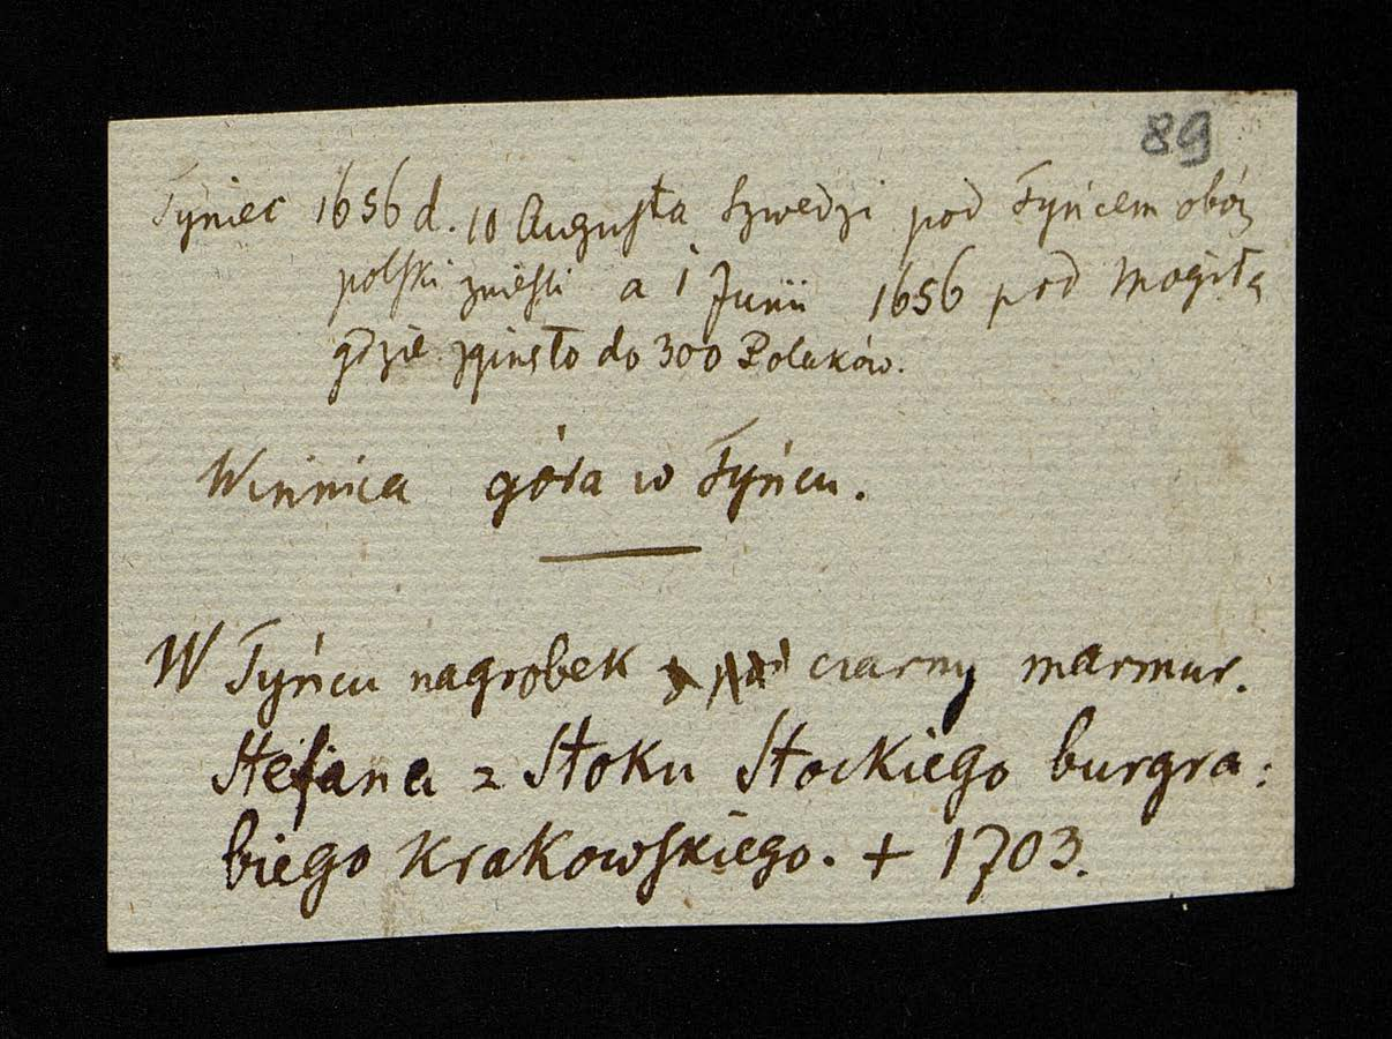 89
Tyniec 1656 d. 10 Augusta Szwedzi pod Tyńcem obóz
polski znieśli a 1 Junii 1656 pod Mogiłą
gdzie zginęło do 300 Polaków.
Winnica góra w Tyńcu.
W Tyńcu nagrobek czarny marmur.
Stefana z Stoku Stockiego burgra:
biego Krakowskiego. + 1703.